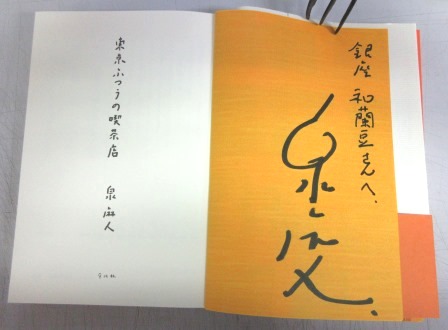 銀座 和蘭豆さんへ.
泉麻人.
東京ふつうの喫茶店
泉麻人
平凡社